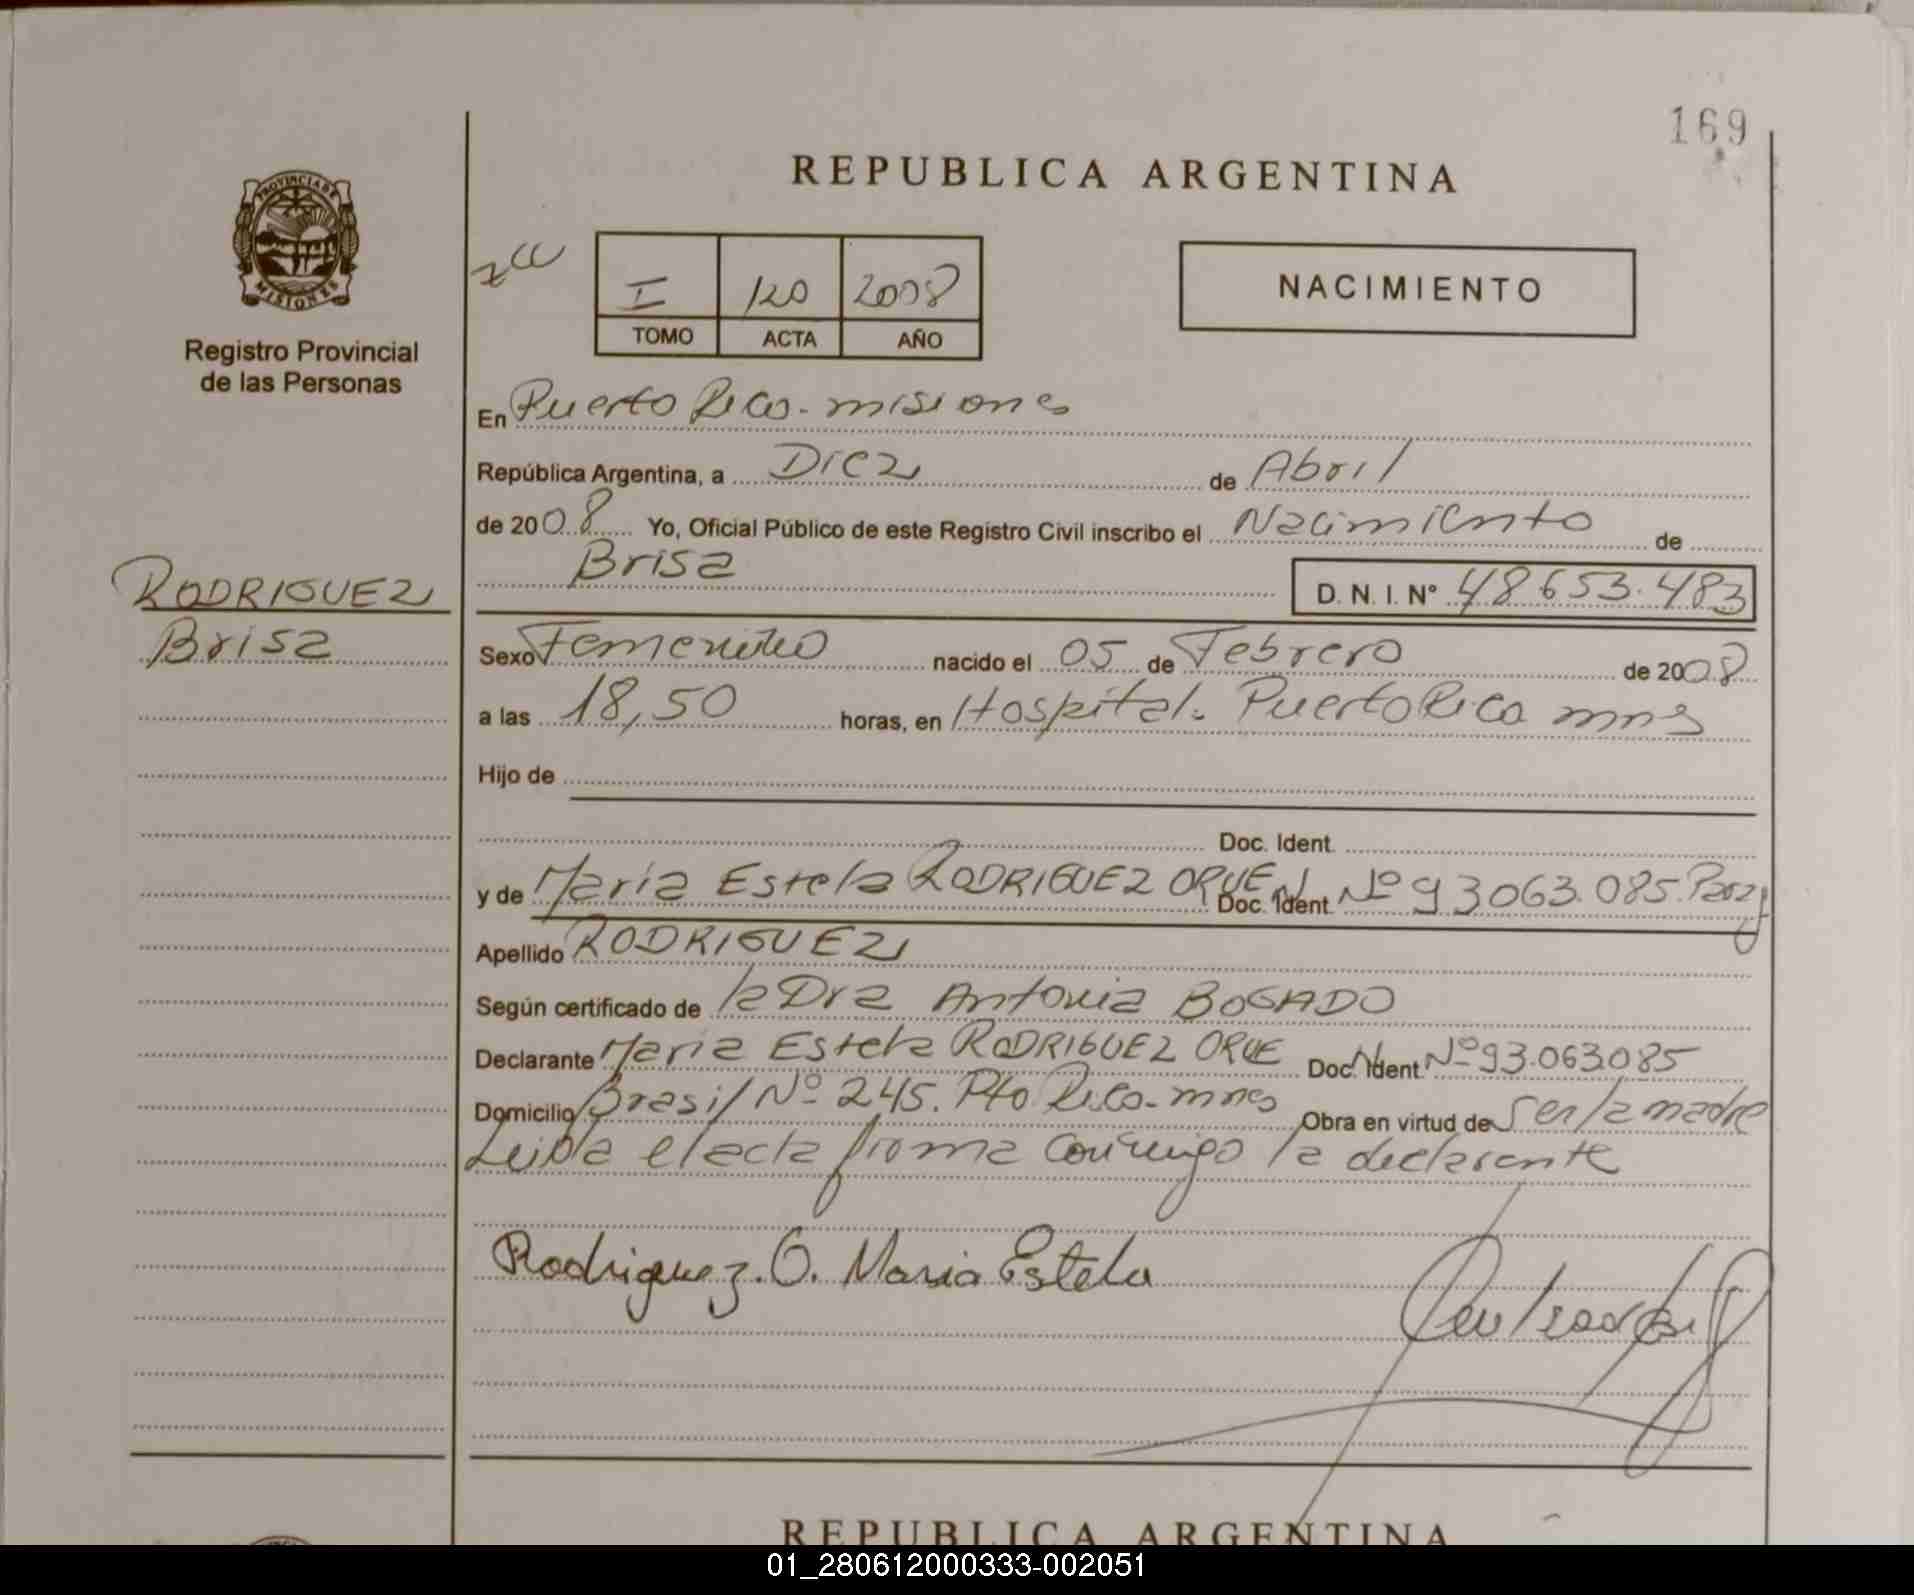 169
REPUBLICA ARGENTINA
PROVINCIA DE
MISIONES
Registro Provincial
de las Personas
I 120 2008
TOMO ACTA AÑO
NACIMIENTO
En Puerto Rico - misiones
República Argentina, a Diez de Abril
de 2008 Yo, Oficial Público de este Registro Civil inscribo el Nacimiento de
Brisa D. N. I. N° 48653.483
RODRIGUEZ
Brisa
Sexo Femenino nacido el 05 de Febrero de 2008
a las 18,50 horas, en Hospital. Puerto Rico mnes
Hijo de
Doc. Ident.
y de Maria Estela RODRIGUEZ ORUE Doc. Ident. Nº 93063.085.
Apellido RODRIGUEZ
Según certificado de la Dra Antonia BOGADO
Declarante Maria Estela RODRIGUEZ ORUE Doc. Ident. Nº 93.063.085
Domicilio Brasil Nº 245. Pto Rico - mnes Obra en virtud de Ser la madre
Leida el acta firma conmigo la declarante
Rodriguez. O. Maria Estela
REPUBLICA ARGENTINA
01_280612000333-002051